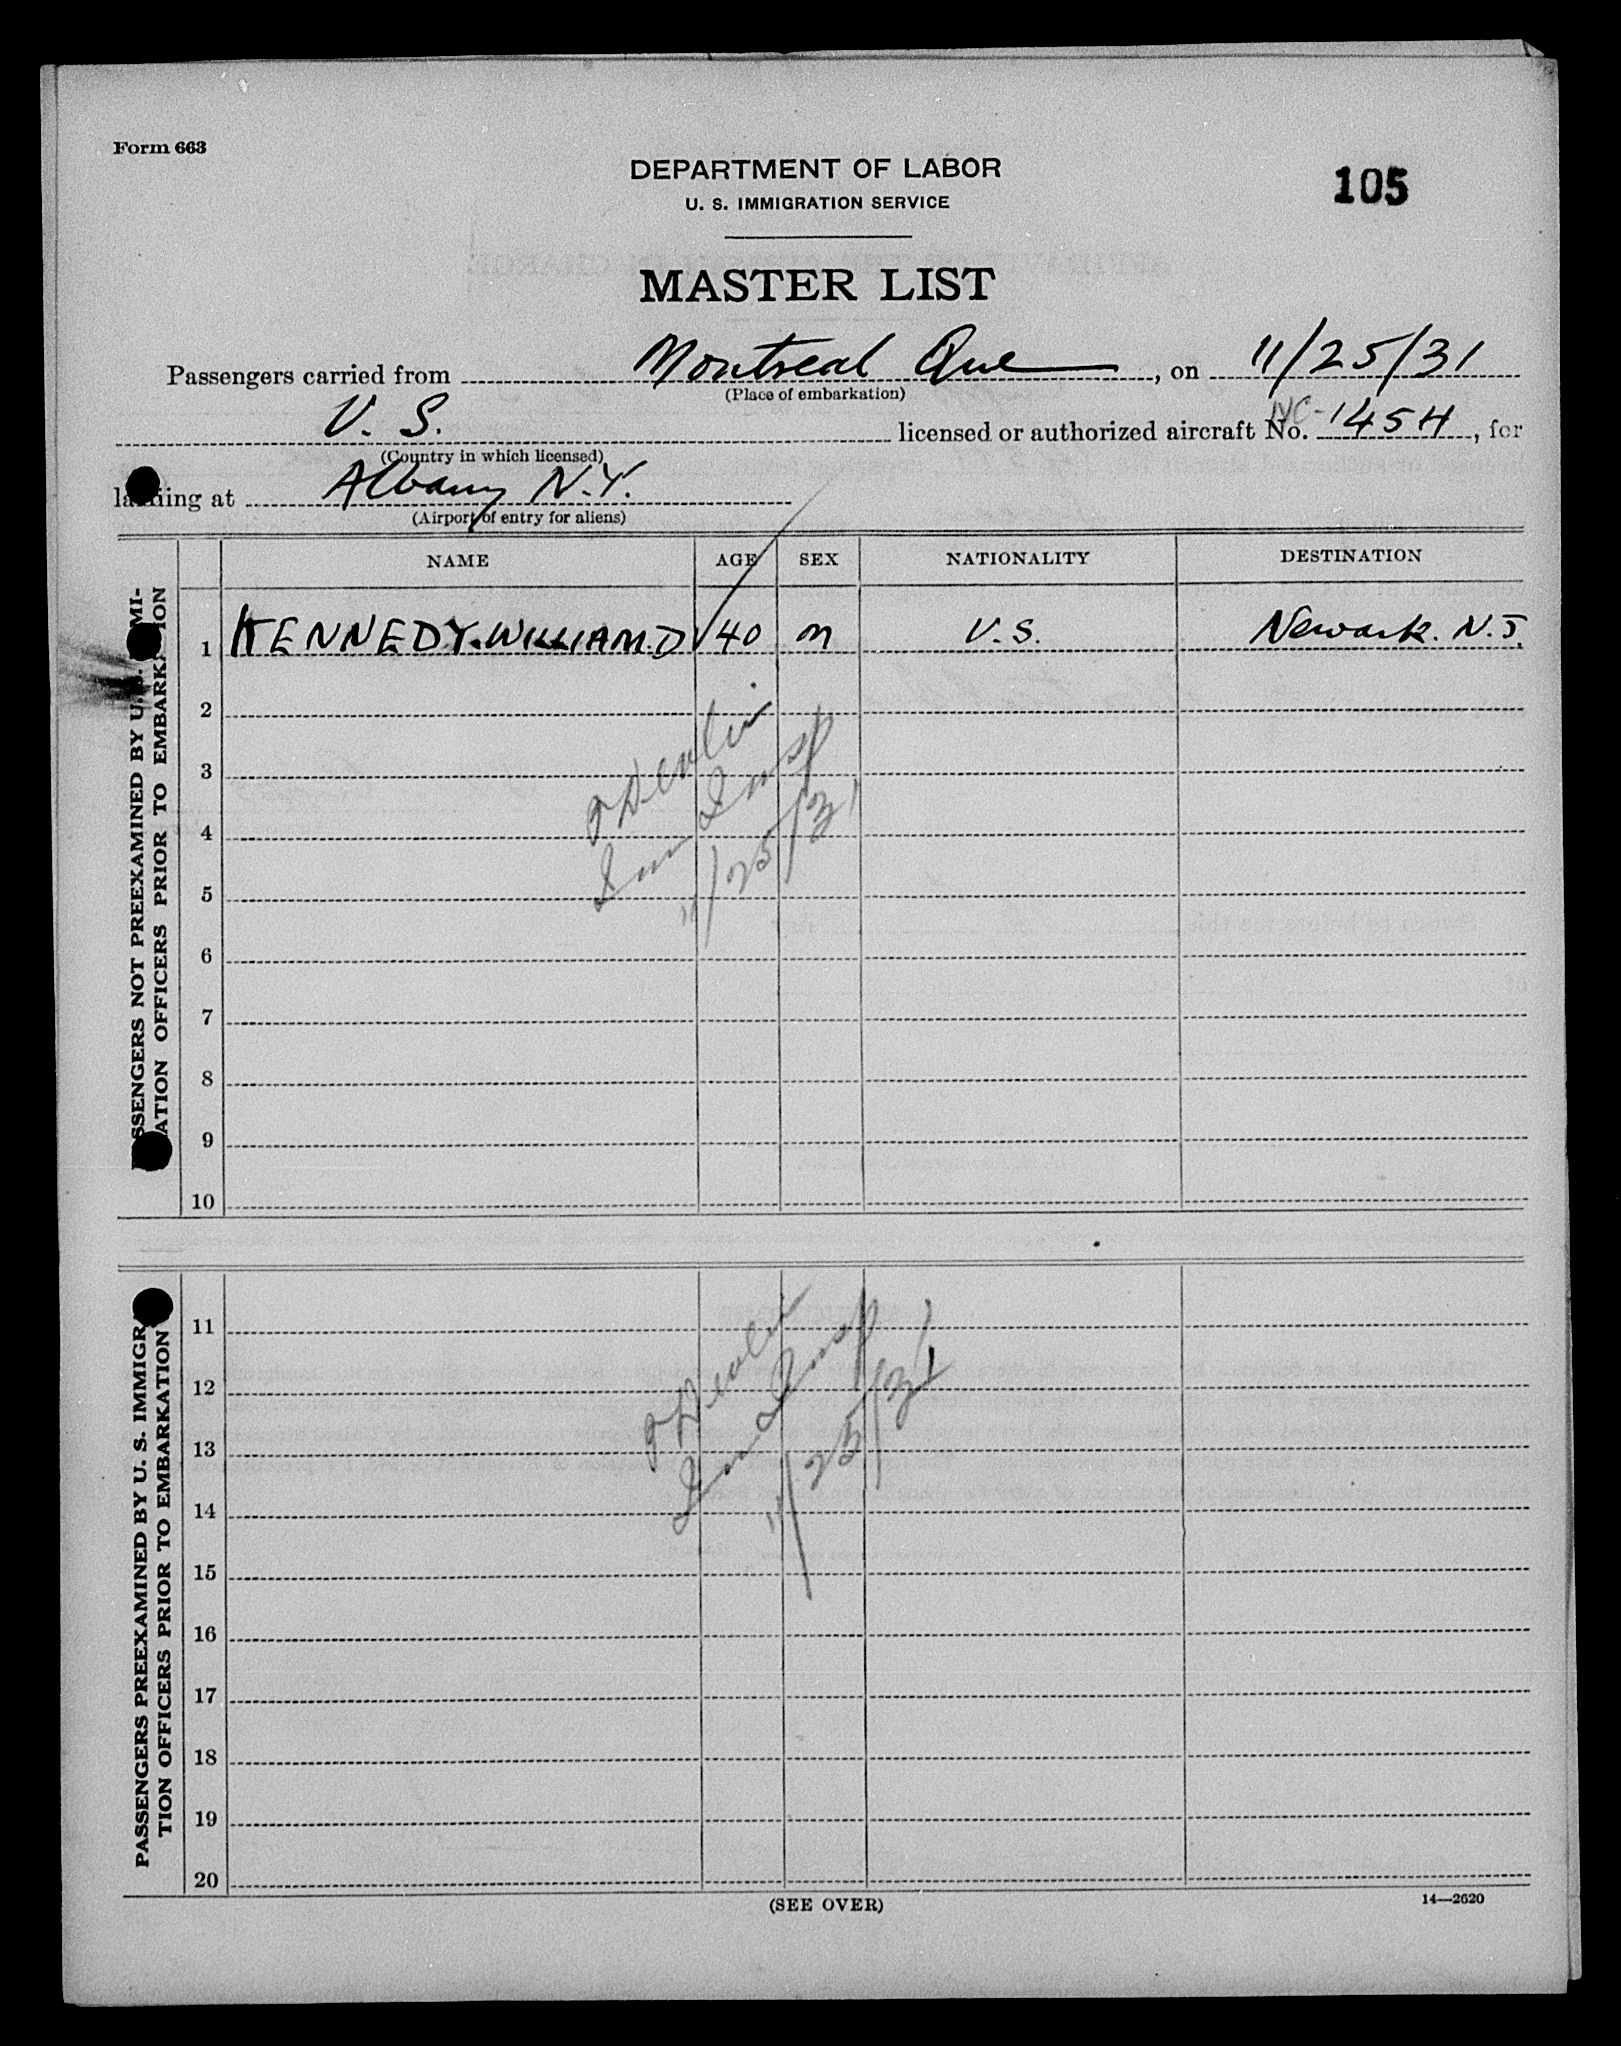 Form 663
DEPARTMENT OF LABOR
U. S. IMMIGRATION SERVICE
105
MASTER LIST
Passengers carried from Montreal Que, on 11/25/31
(Place of embarkation)
U. S. licensed or authorized aircraft No. NC-145H, for
(Country in which licensed)
landing at Albany N.Y.
(Airport of entry for aliens)
NAME AGE SEX NATIONALITY DESTINATION
PASSENGERS NOT PREEXAMINED BY U. S. IMMI-
GRATION OFFICERS PRIOR TO EMBARKATION
1 KENNEDY. WILLIAM. D 40 M U.S. Newark. N.J.
2
3
4
5
6
7
8
9
10
Devlin
Imm Insp
11/25/31
PASSENGERS PREEXAMINED BY U. S. IMMIGRA-
TION OFFICERS PRIOR TO EMBARKATION
11
12
13
14
15
16
17
18
19
20
Devlin
Imm Insp
11/25/31
(SEE OVER)
14—2620